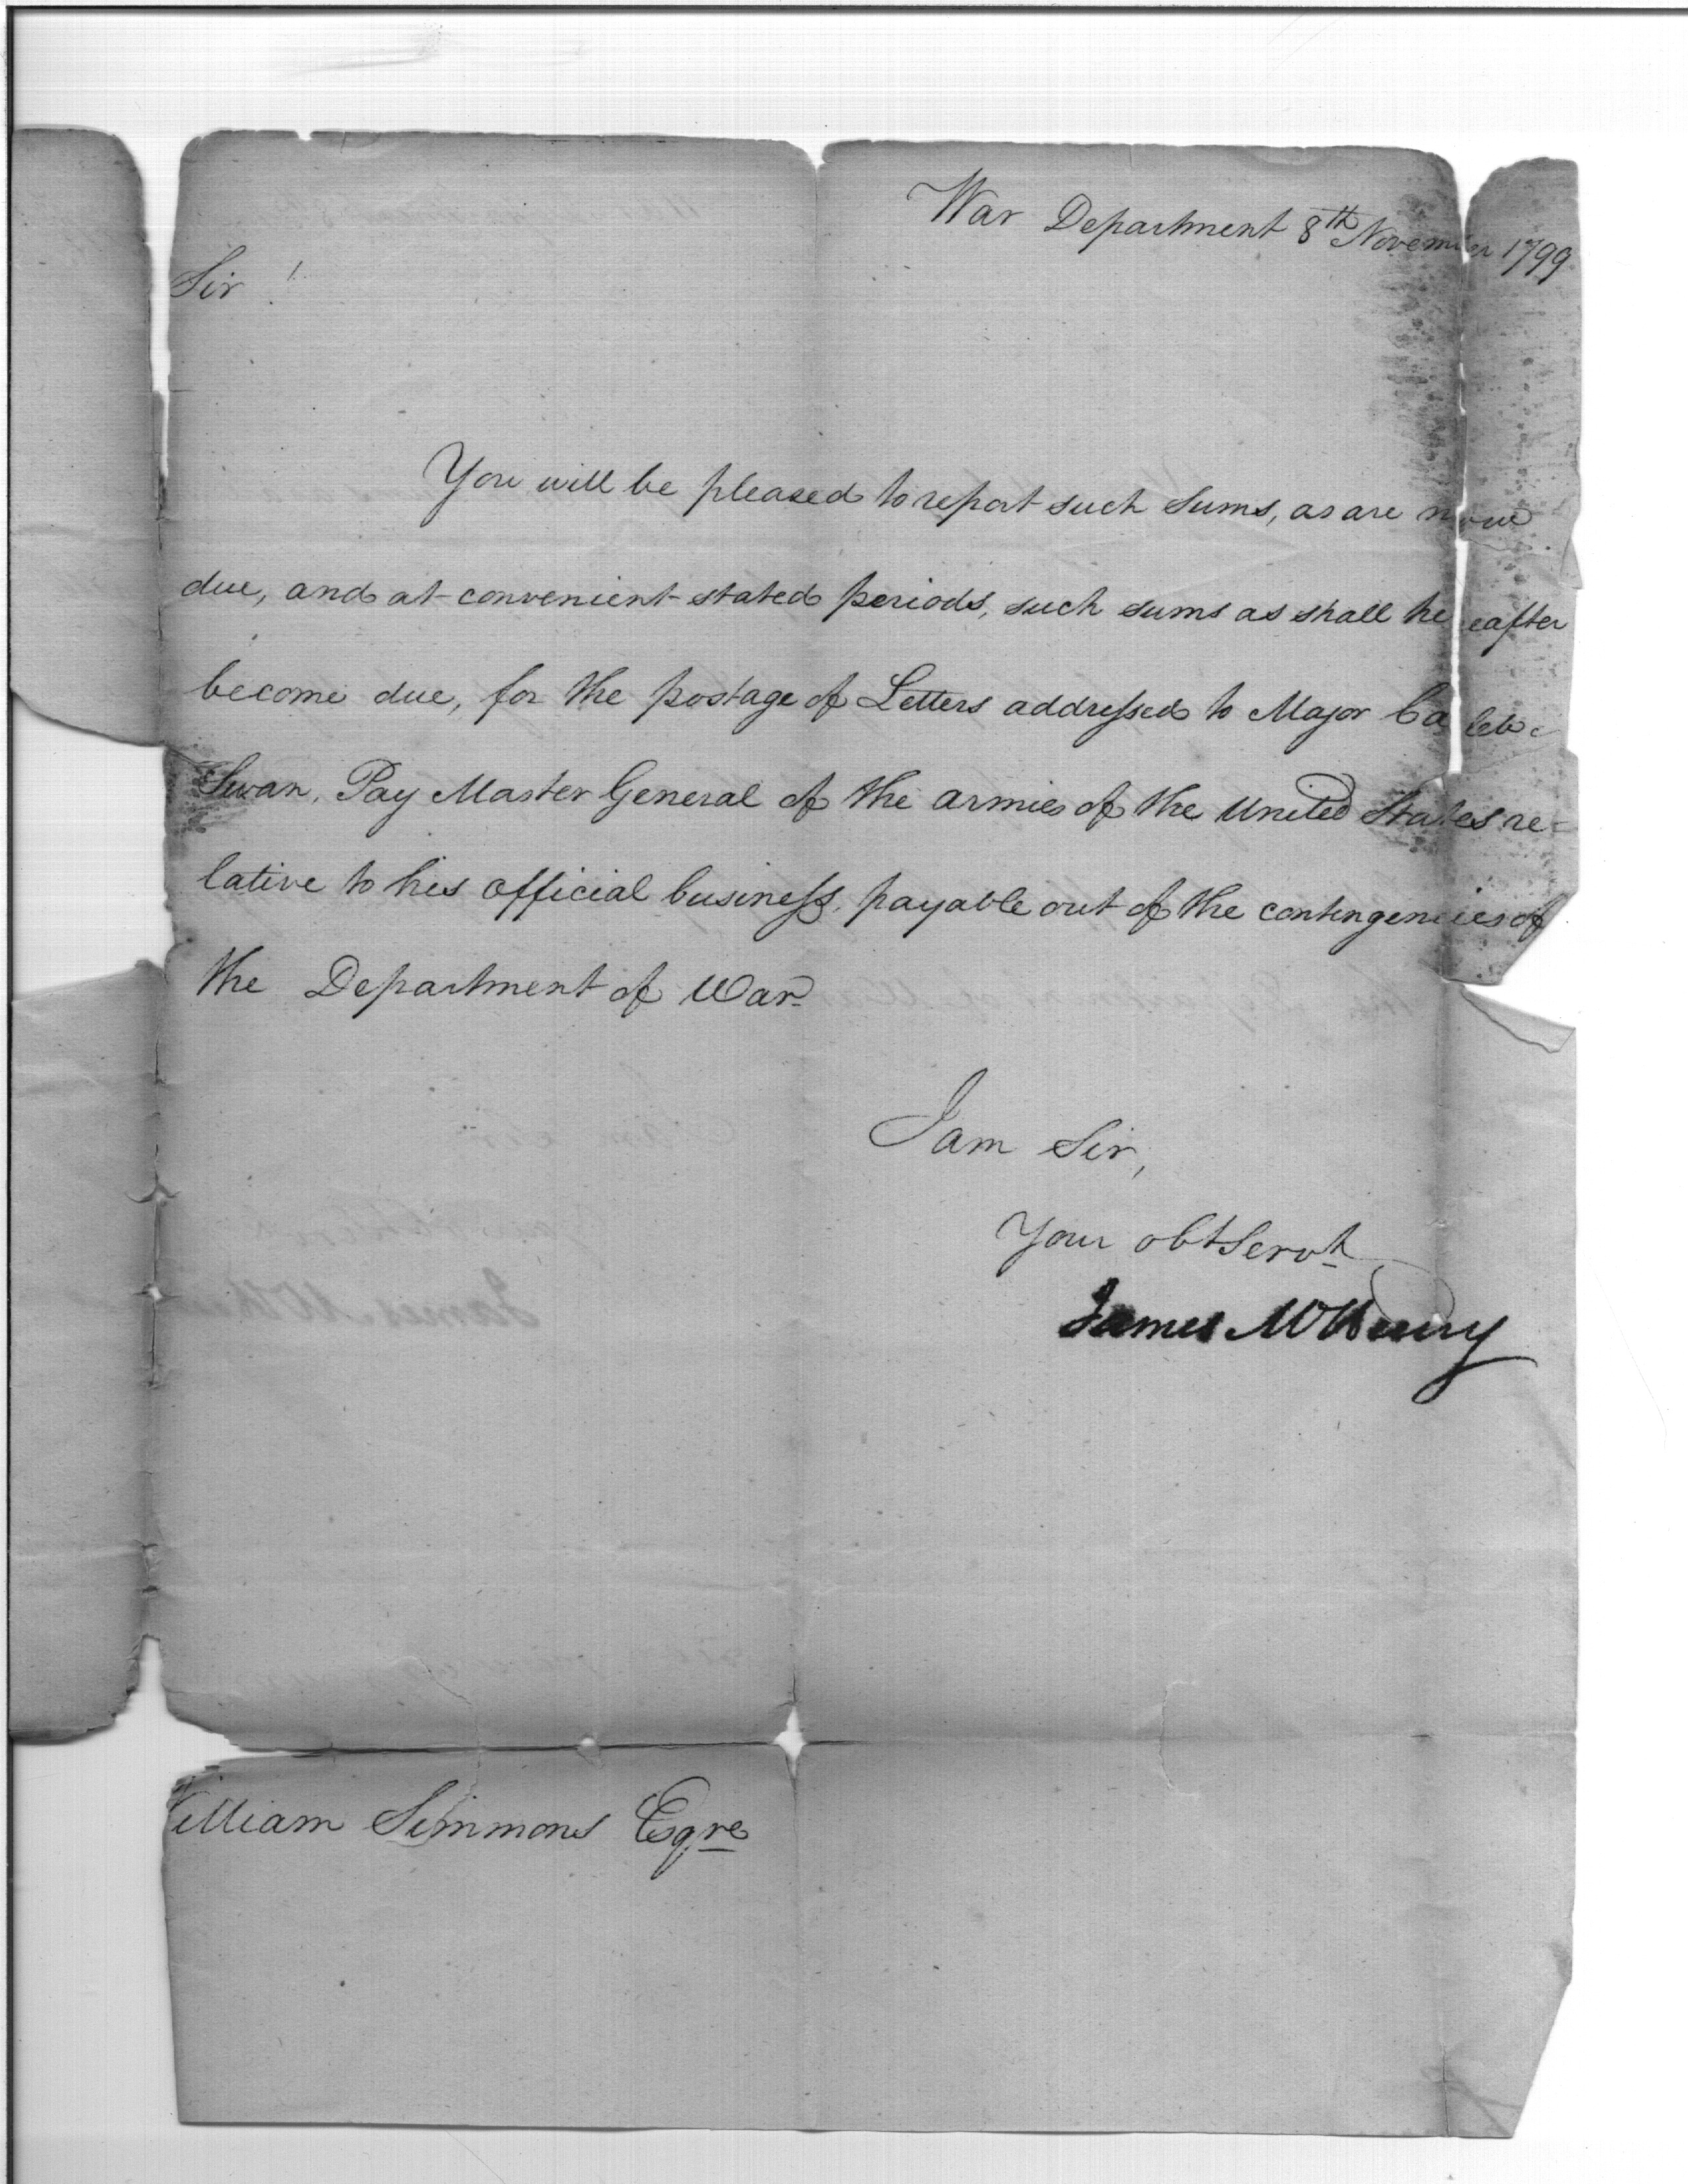 War Department 8th November 1799
Sir!
You will be pleased to report such sums, as are now
due, and at convenient stated periods, such sums as shall hereafter
become due, for the postage of Letters addressed to Major Caleb
Swan, Pay Master General of the armies of the United States re=
lative to his official business, payable out of the contingencies of
the Department of War.
I am Sir,
Your obt Servt
James McHenry
William Simmons Esqre